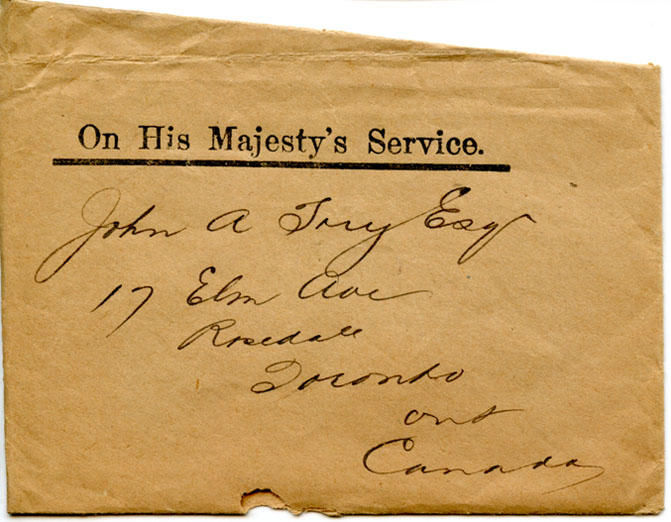 On His Majesty's Service.
John A Tory Esq
17 Elm Ave
Rosedale
Toronto
Ont
Canada